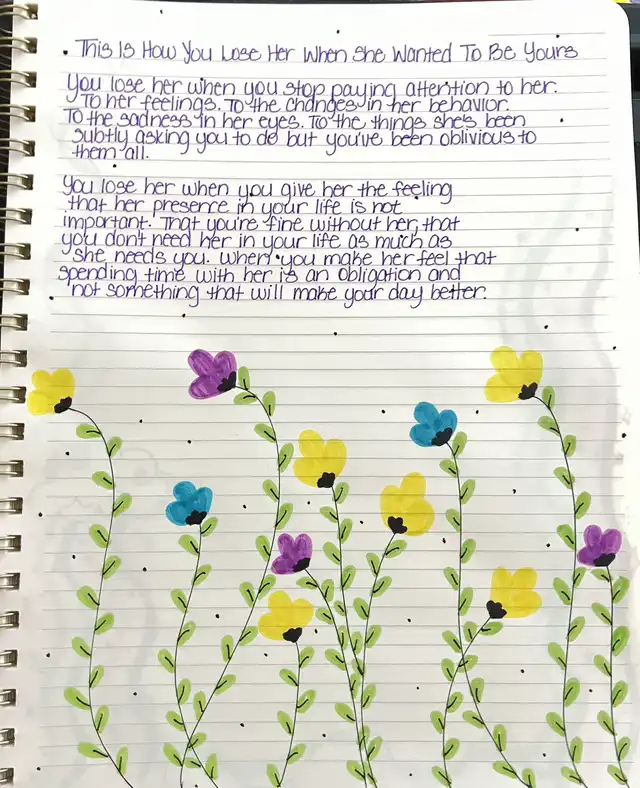 This Is How You Lose Her When She Wanted To Be Yours
You lose her when you stop paying attention to her.
To her feelings. To the changes in her behavior.
To the sadness in her eyes. To the things she's been
subtly asking you to do but you've been oblivious to
them all.
You lose her when you give her the feeling
that her presence in your life is not
important. That you're fine without her, that
you don't need her in your life as much as
she needs you. When you make her feel that
spending time with her is an obligation and
not something that will make your day better.